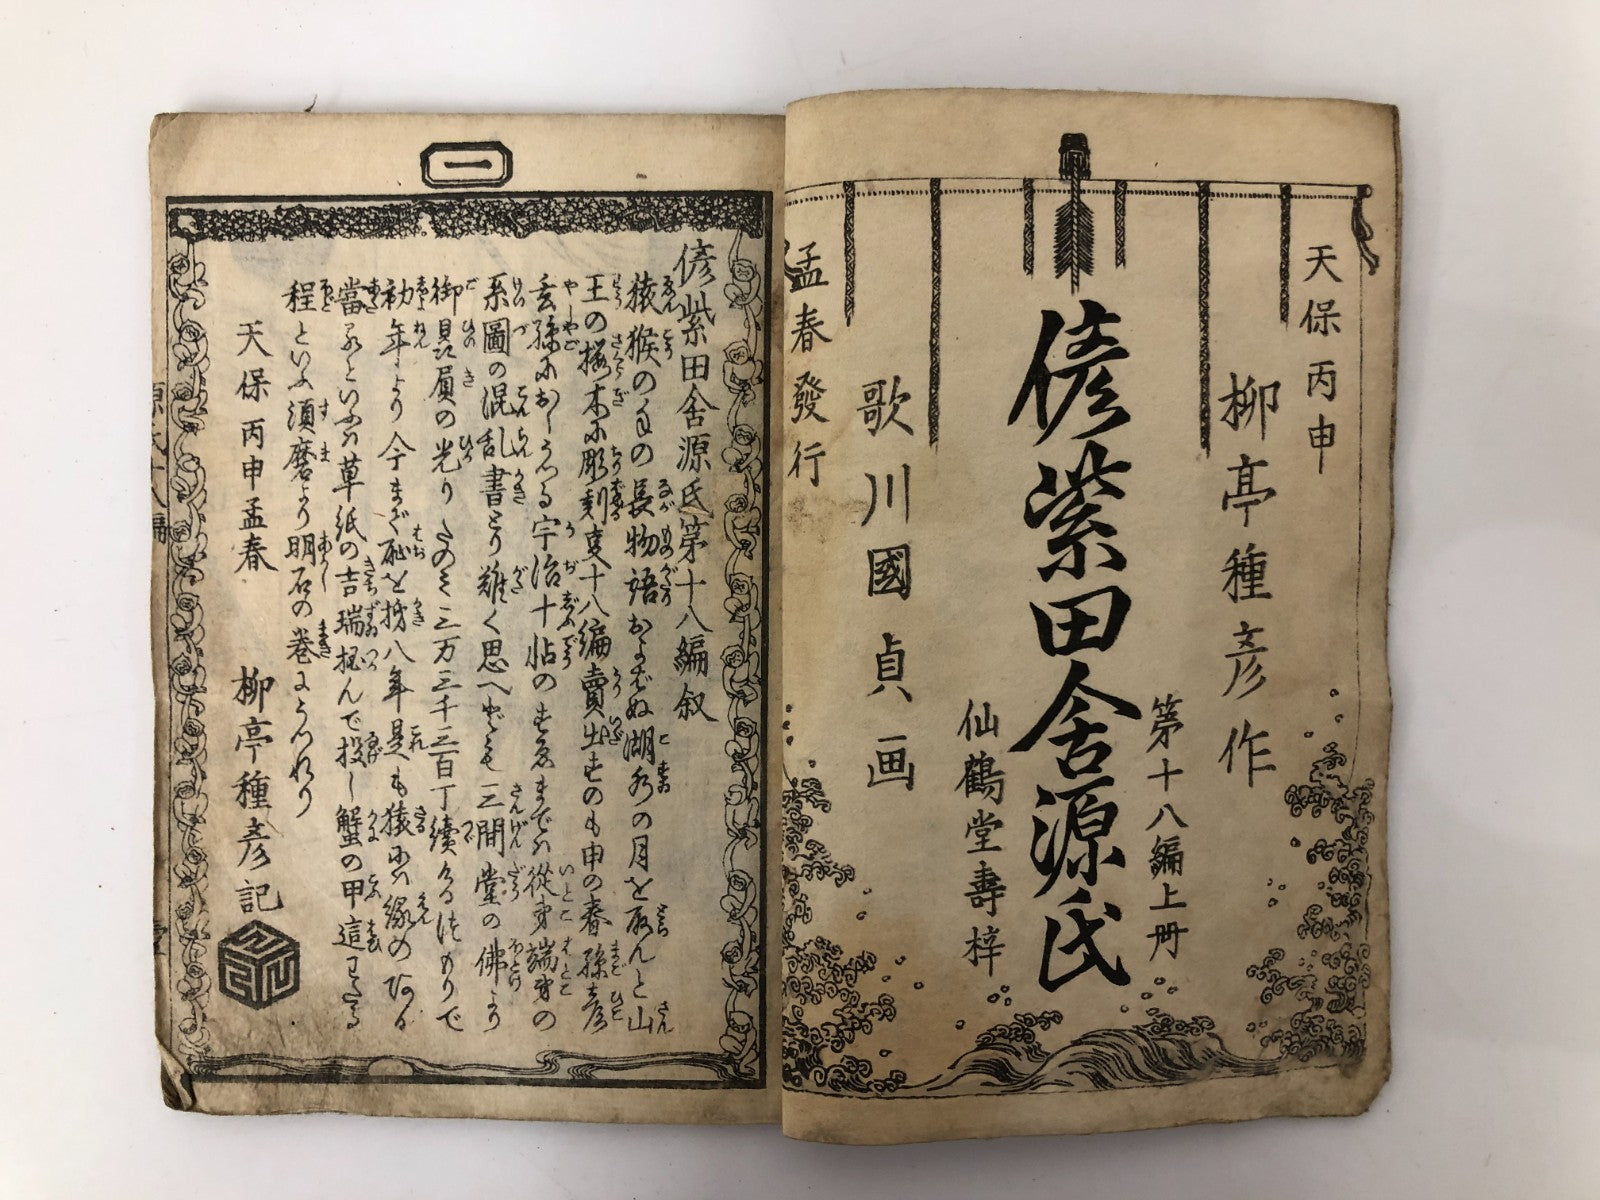 天保丙申
柳亭種彦作
第十八編上冊
偐紫田舎源氏
仙鶴堂壽梓
歌川國貞画
孟春發行
一
偐紫田舎源氏第十八編叙
猿猴の手の長物語およばぬ湖水の月を取んと山
王の桜木に彫刻
十八編賣出せしも申の春孫彦
玄孫にわしつる宇治十帖のすゑまでハ從弟端弟の
系圖の混乱書とり難く思へども三間堂の佛より
御贔屓の光りたのミ三万三千三百丁續けるつもりで
初年より今まで恥を抓八年是も猿にハ縁のある
當るといふハ草紙の吉瑞
んで投し蟹の甲這わたる
程といふ須磨より明石の巻にうつれり
天保丙申孟春
柳亭種彦記